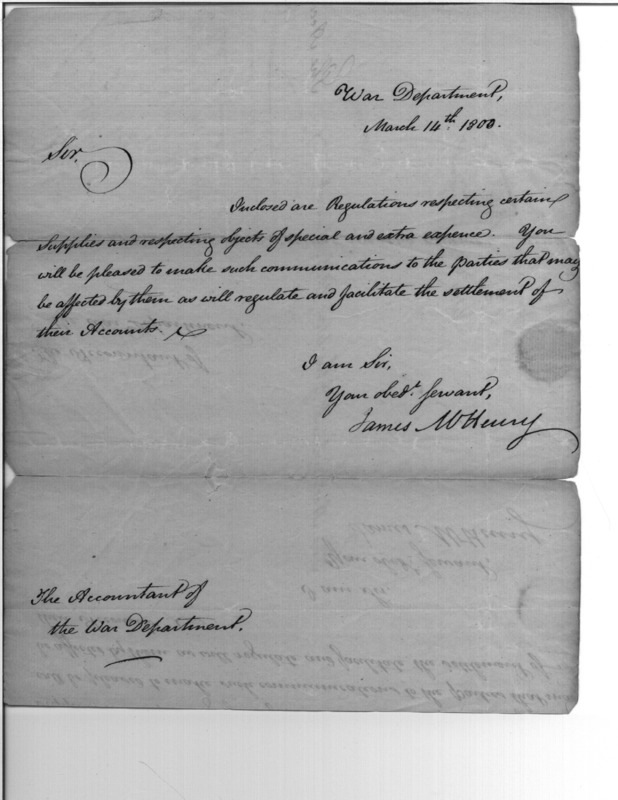 War Department,
March 14th. 1800.
Sir,
Inclosed are Regulations respecting certain
Supplies and respecting objects of special and extra expence. You
will be pleased to make such communications to the parties that may
be affected by them as will regulate and facilitate the settlement of
their Accounts.
I am Sir,
Your obedt. servant,
James McHenry
The Accountant of
the War Department.